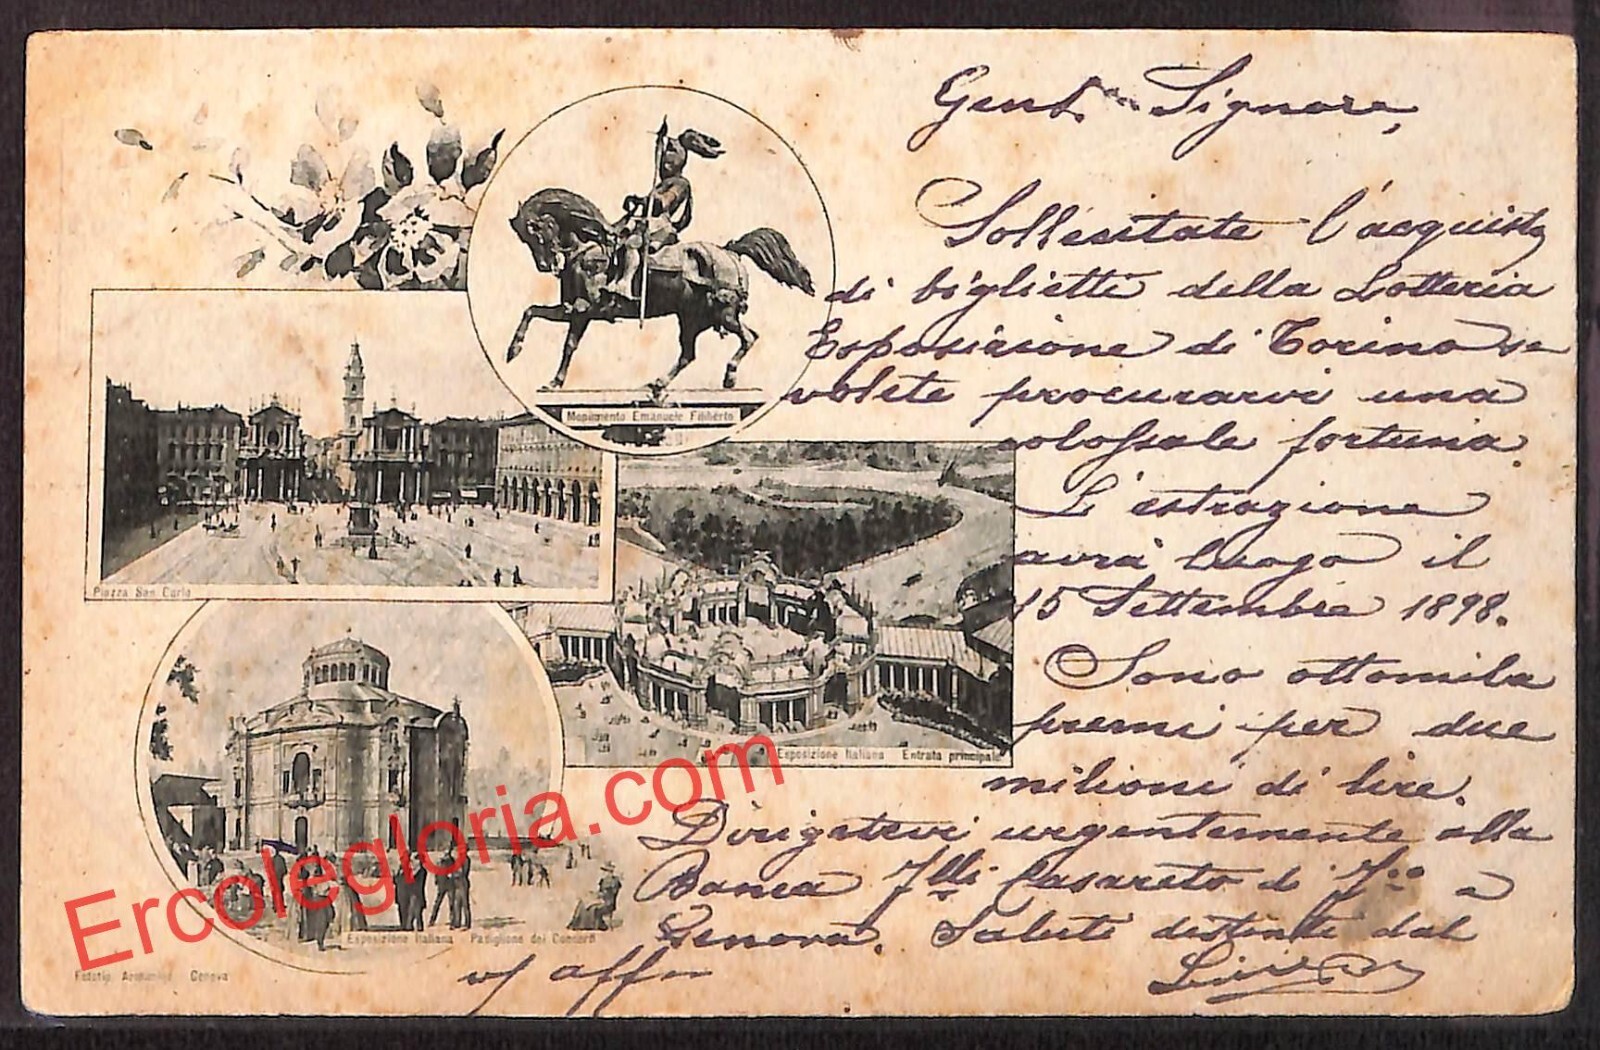 Gent. Signore,
Sollecitate l'acquisto
di biglietti della Lotteria
Esposizione di Torino se
volete procurarvi una
colossale fortuna.
L'estrazione
avrà luogo il
15 Settembre 1898.
Sono ottomila
premi per due
milioni di lire.
Dirigetevi urgentemente alla
Banca Flli Casareto di Fco a
Genova. Saluti distinti dal
v/ aff
Monumento Emanuele Filiberto
Piazza San Carlo
Esposizione Italiana Entrata principale
Esposizione Italiana Padiglione dei Concerti
Genova
Ercolegloria.com